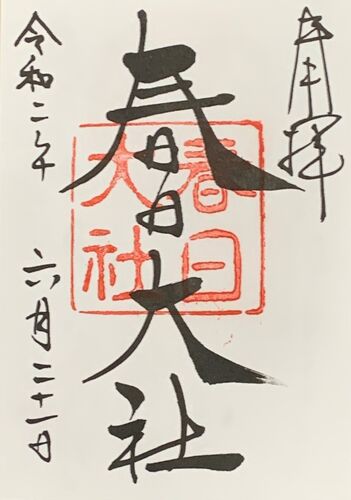 奉拝
春日大社
春日
大社
令和二年
六月二十一日